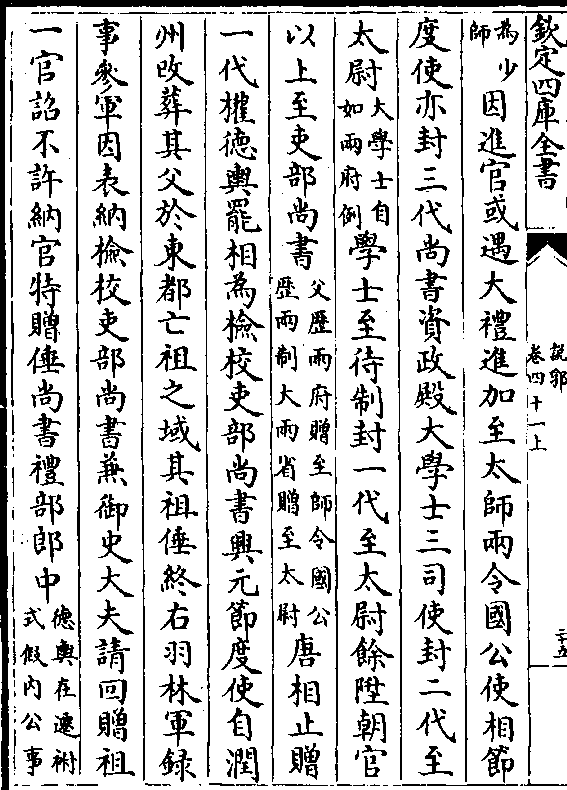 欽定四庫全書
説郛
卷四十一上
二十五
為少師因進官或遇大禮進加至太師兩令國公使相節
度使亦封三代尚書資政殿大學士三司使封二代至
太尉大學士自如兩府例學士至待制封一代至太尉餘陞朝官
以上至吏部尚書父歴兩府贈至師令國公歴兩制大兩省贈至太尉唐相止贈
一代權德輿罷相為檢校吏部尚書興元節度使自潤
州改葬其父於東都亡祖之域其祖倕終右羽林軍録
事參軍因表納檢校吏部尚書兼御史大夫請回贈祖
一官詔不許納官特贈倕尚書禮部郎中德輿在遷祔式假内公事